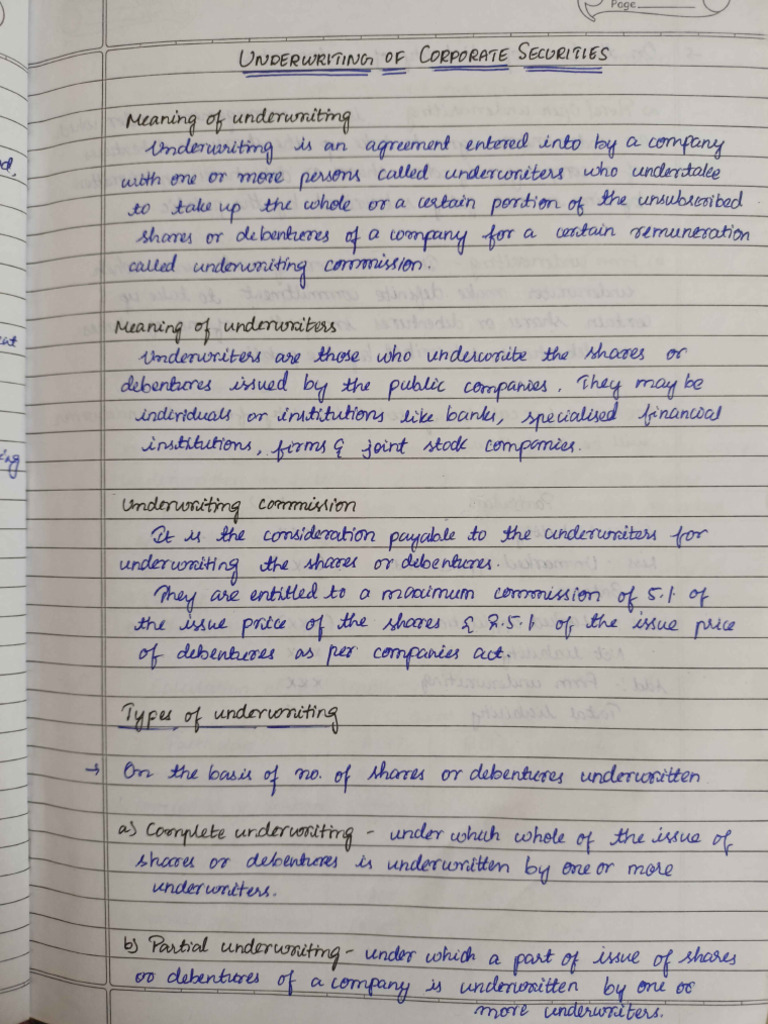 Page
UNDERWRITING OF CORPORATE SECURITIES
Meaning of underwriting
Underwriting is an agreement entered into by a company
with one or more persons called underwriters who undertake
to take up the whole or a certain portion of the unsubscribed
shares or debentures of a company for a certain remuneration
called underwriting commission.
Meaning of underwriters
Underwriters are those who underwrite the shares or
debentures issued by the public companies. They may be
individuals or institutions like banks, specialised financial
institutions, firms & joint stock companies.
Underwriting commission
It is the consideration payable to the underwriters for
underwriting the shares or debentures.
They are entitled to a maximum commission of 5% of
the issue price of the shares & 2.5% of the issue price
of debentures as per companies act.
Types of underwriting
→ On the basis of no. of shares or debentures underwritten
a) Complete underwriting - under which whole of the issue of
shares or debentures is underwritten by one or more
underwriters.
b) Partial underwriting - under which a part of issue of shares
or debentures of a company is underwritten by one or
more underwriters.